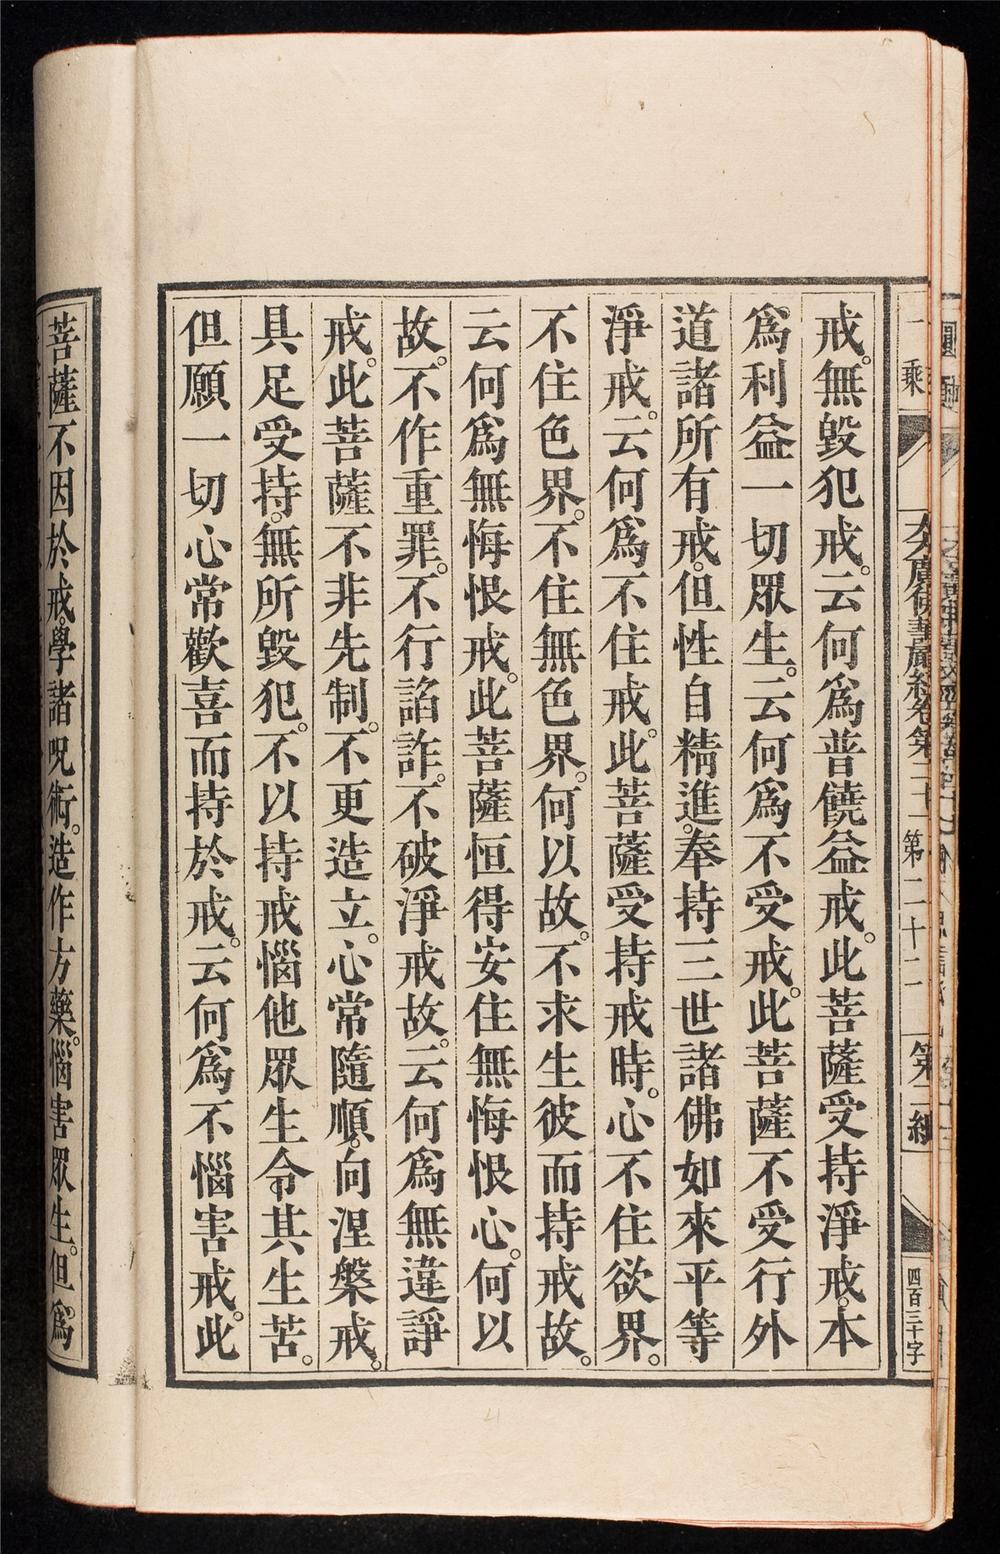 戒。無毀犯戒。云何爲普饒益戒。此菩薩受持淨戒。本
爲利益一切眾生。云何爲不受戒。此菩薩不受行外
道諸所有戒。但性自精進。奉持三世諸佛如來平等
淨戒。云何爲不住戒。此菩薩受持戒時。心不住欲界。
不住色界。不住無色界。何以故。不求生彼而持戒故。
云何爲無悔恨戒。此菩薩恒得安住無悔恨心。何以
故。不作重罪。不行諂詐。不破淨戒故。云何爲無違諍
戒。此菩薩不非先制。不更造立。心常隨順。向涅槃戒。
具足受持。無所毀犯。不以持戒惱他眾生令其生苦。
但願一切心常歡喜而持於戒。云何爲不惱害戒。此
菩薩不因於戒。學諸呪術。造作方藥。惱害眾生。但爲
乘
大方廣佛華嚴經卷第二十一
第二十二
第二紙
四百三十字